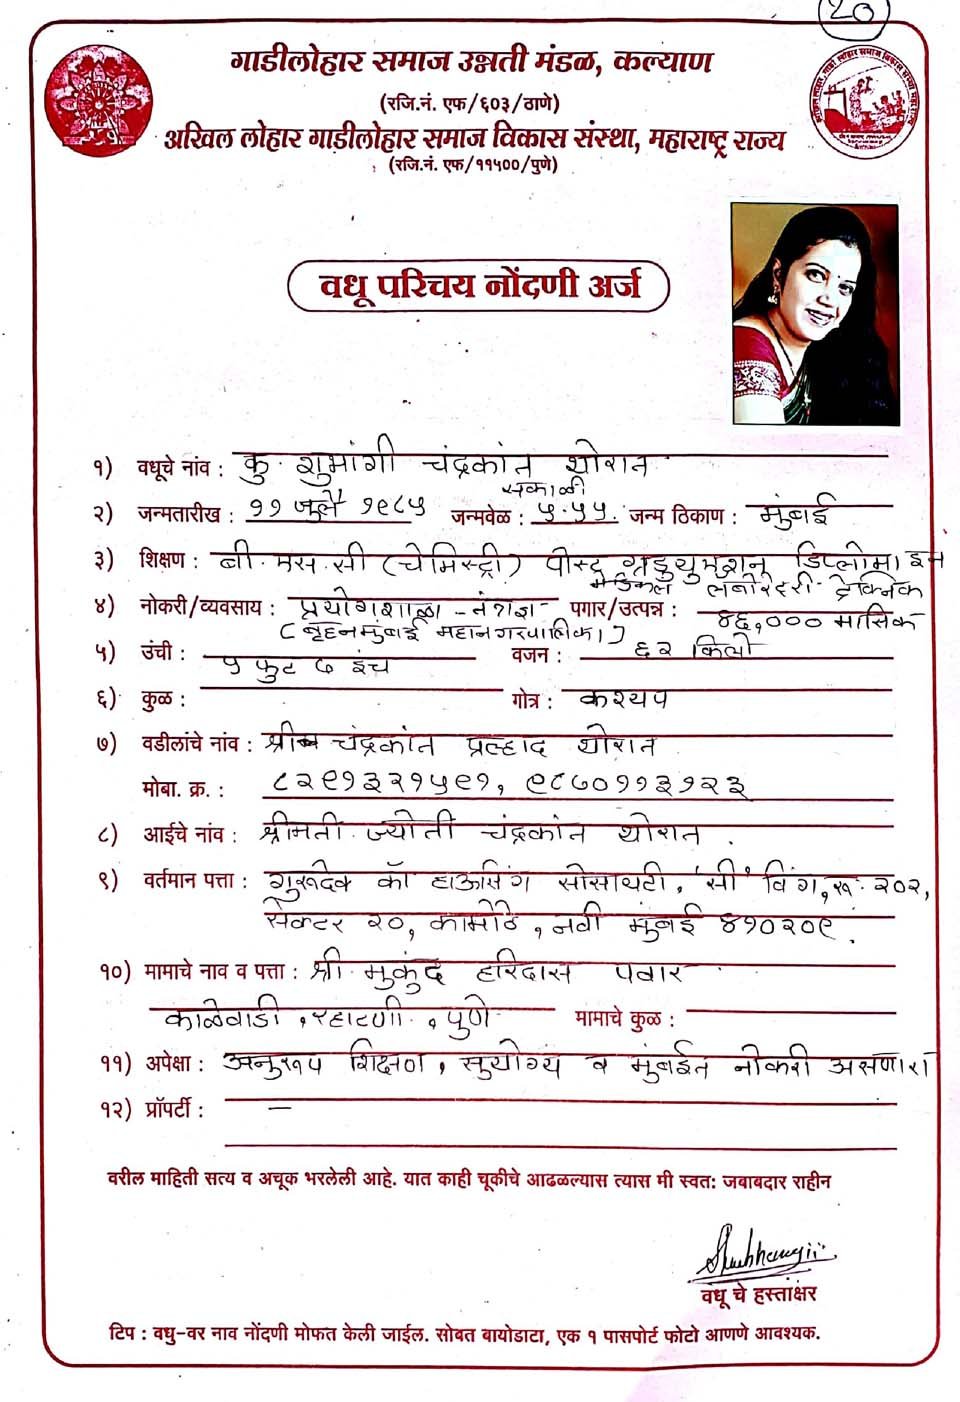 20
गाडीलोहार समाज उन्नती मंडळ, कल्याण
(रजि.नं. एफ/६०३/ठाणे)
अखिल लोहार गाडीलोहार समाज विकास संस्था, महाराष्ट्र राज्य
(रजि.नं. एफ/११५००/पुणे)
वधू परिचय नोंदणी अर्ज
१) वधूचे नांव : कु. शुभांगी चंद्रकांत थोरात
सकाळी
२) जन्मतारीख : ११ जुलै १९८५ जन्मवेळ : ५.५५. जन्म ठिकाण : मुंबई
३) शिक्षण : बी. एस. सी (चेमिस्ट्री) पोस्ट ग्रॅड्युएशन डिप्लोमा इन
मेडिकल लॅबोरेटरी टेक्निक
४) नोकरी/व्यवसाय : प्रयोगशाळा - तंत्रज्ञ पगार/उत्पन्न : ४६,००० मासिक
(बृहन्मुंबई महानगरपालिका)
५) उंची : ५ फुट ७ इंच वजन : ६२ किलो
६) कुळ : गोत्र : कश्यप
७) वडीलांचे नांव : श्री चंद्रकांत प्रल्हाद थोरात
मोबा. क्र. : ८२९१३२१५९१, ९८७०११३१२३
८) आईचे नांव : श्रीमती ज्योती चंद्रकांत थोरात .
९) वर्तमान पत्ता : गुरुदेव कॉ हाऊसिंग सोसायटी, 'सी' विंग, रू. २०२,
सेक्टर २०, कामोठे, नवी मुंबई ४१०२०९.
१०) मामाचे नाव व पत्ता : श्री. मुकुंद हरिदास पवार
काळेवाडी, रहाटणी, पुणे मामाचे कुळ :
११) अपेक्षा : अनुरूप शिक्षण, सुयोग्य व मुंबईत नोकरी असणारा
१२) प्रॉपर्टी : —
वरील माहिती सत्य व अचूक भरलेली आहे. यात काही चूकीचे आढळल्यास त्यास मी स्वत: जबाबदार राहीन
Shubhangii
वधू चे हस्तांक्षर
टिप : वधु-वर नाव नोंदणी मोफत केली जाईल. सोबत बायोडाटा, एक १ पासपोर्ट फोटो आणणे आवश्यक.